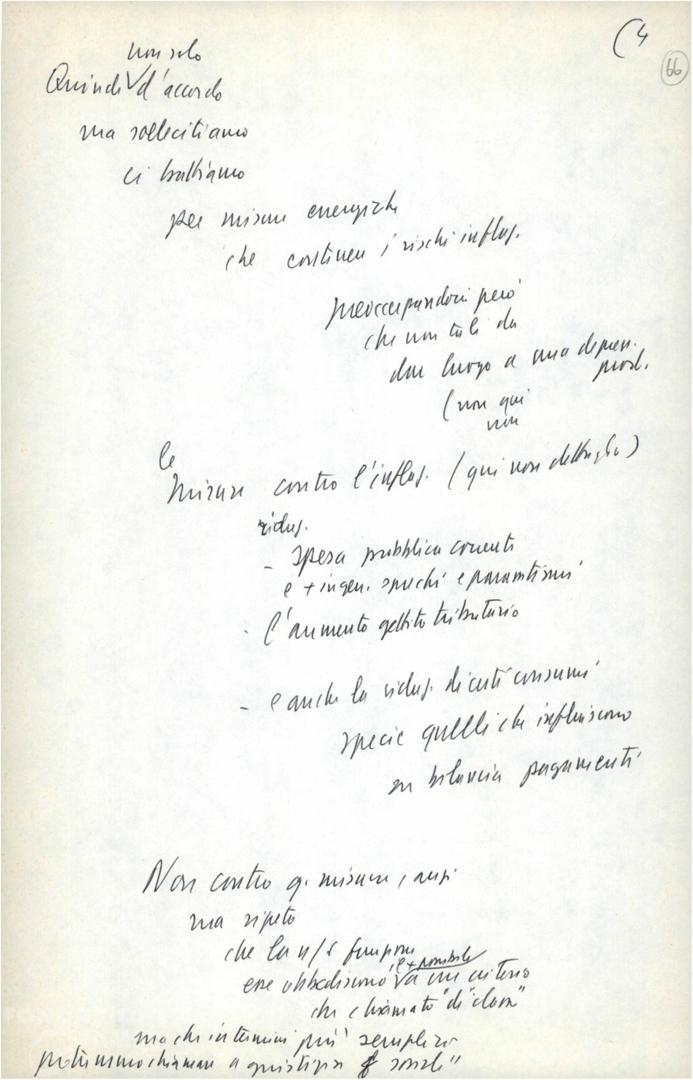 (4
66
non solo
Quindi √ d'accordo
ma sollecitiamo
ci battiamo
per misure energiche
che contineu i rischi inflaz.
preoccupandoci però
che non tali da
dar luogo a una depress.
prod.
(non qui
non
le
misure contro l'inflaz. (qui non dettaglio)
riduz.
- spesa pubblica correnti
e + ingen. sprechi e parassitismi
- l'aumento gettito tributario
- e anche la riduz. di certi consumi
specie quelli che influiscono
su bilancia pagamenti
Non contro q. misure, anzi
ma ripeto
che la n/s
il + possibile
esse obbediscono √ a un criterio
che chiamato "di classe"
ma che in termini più semplici
potremmo chiamare a giustizia sociale"